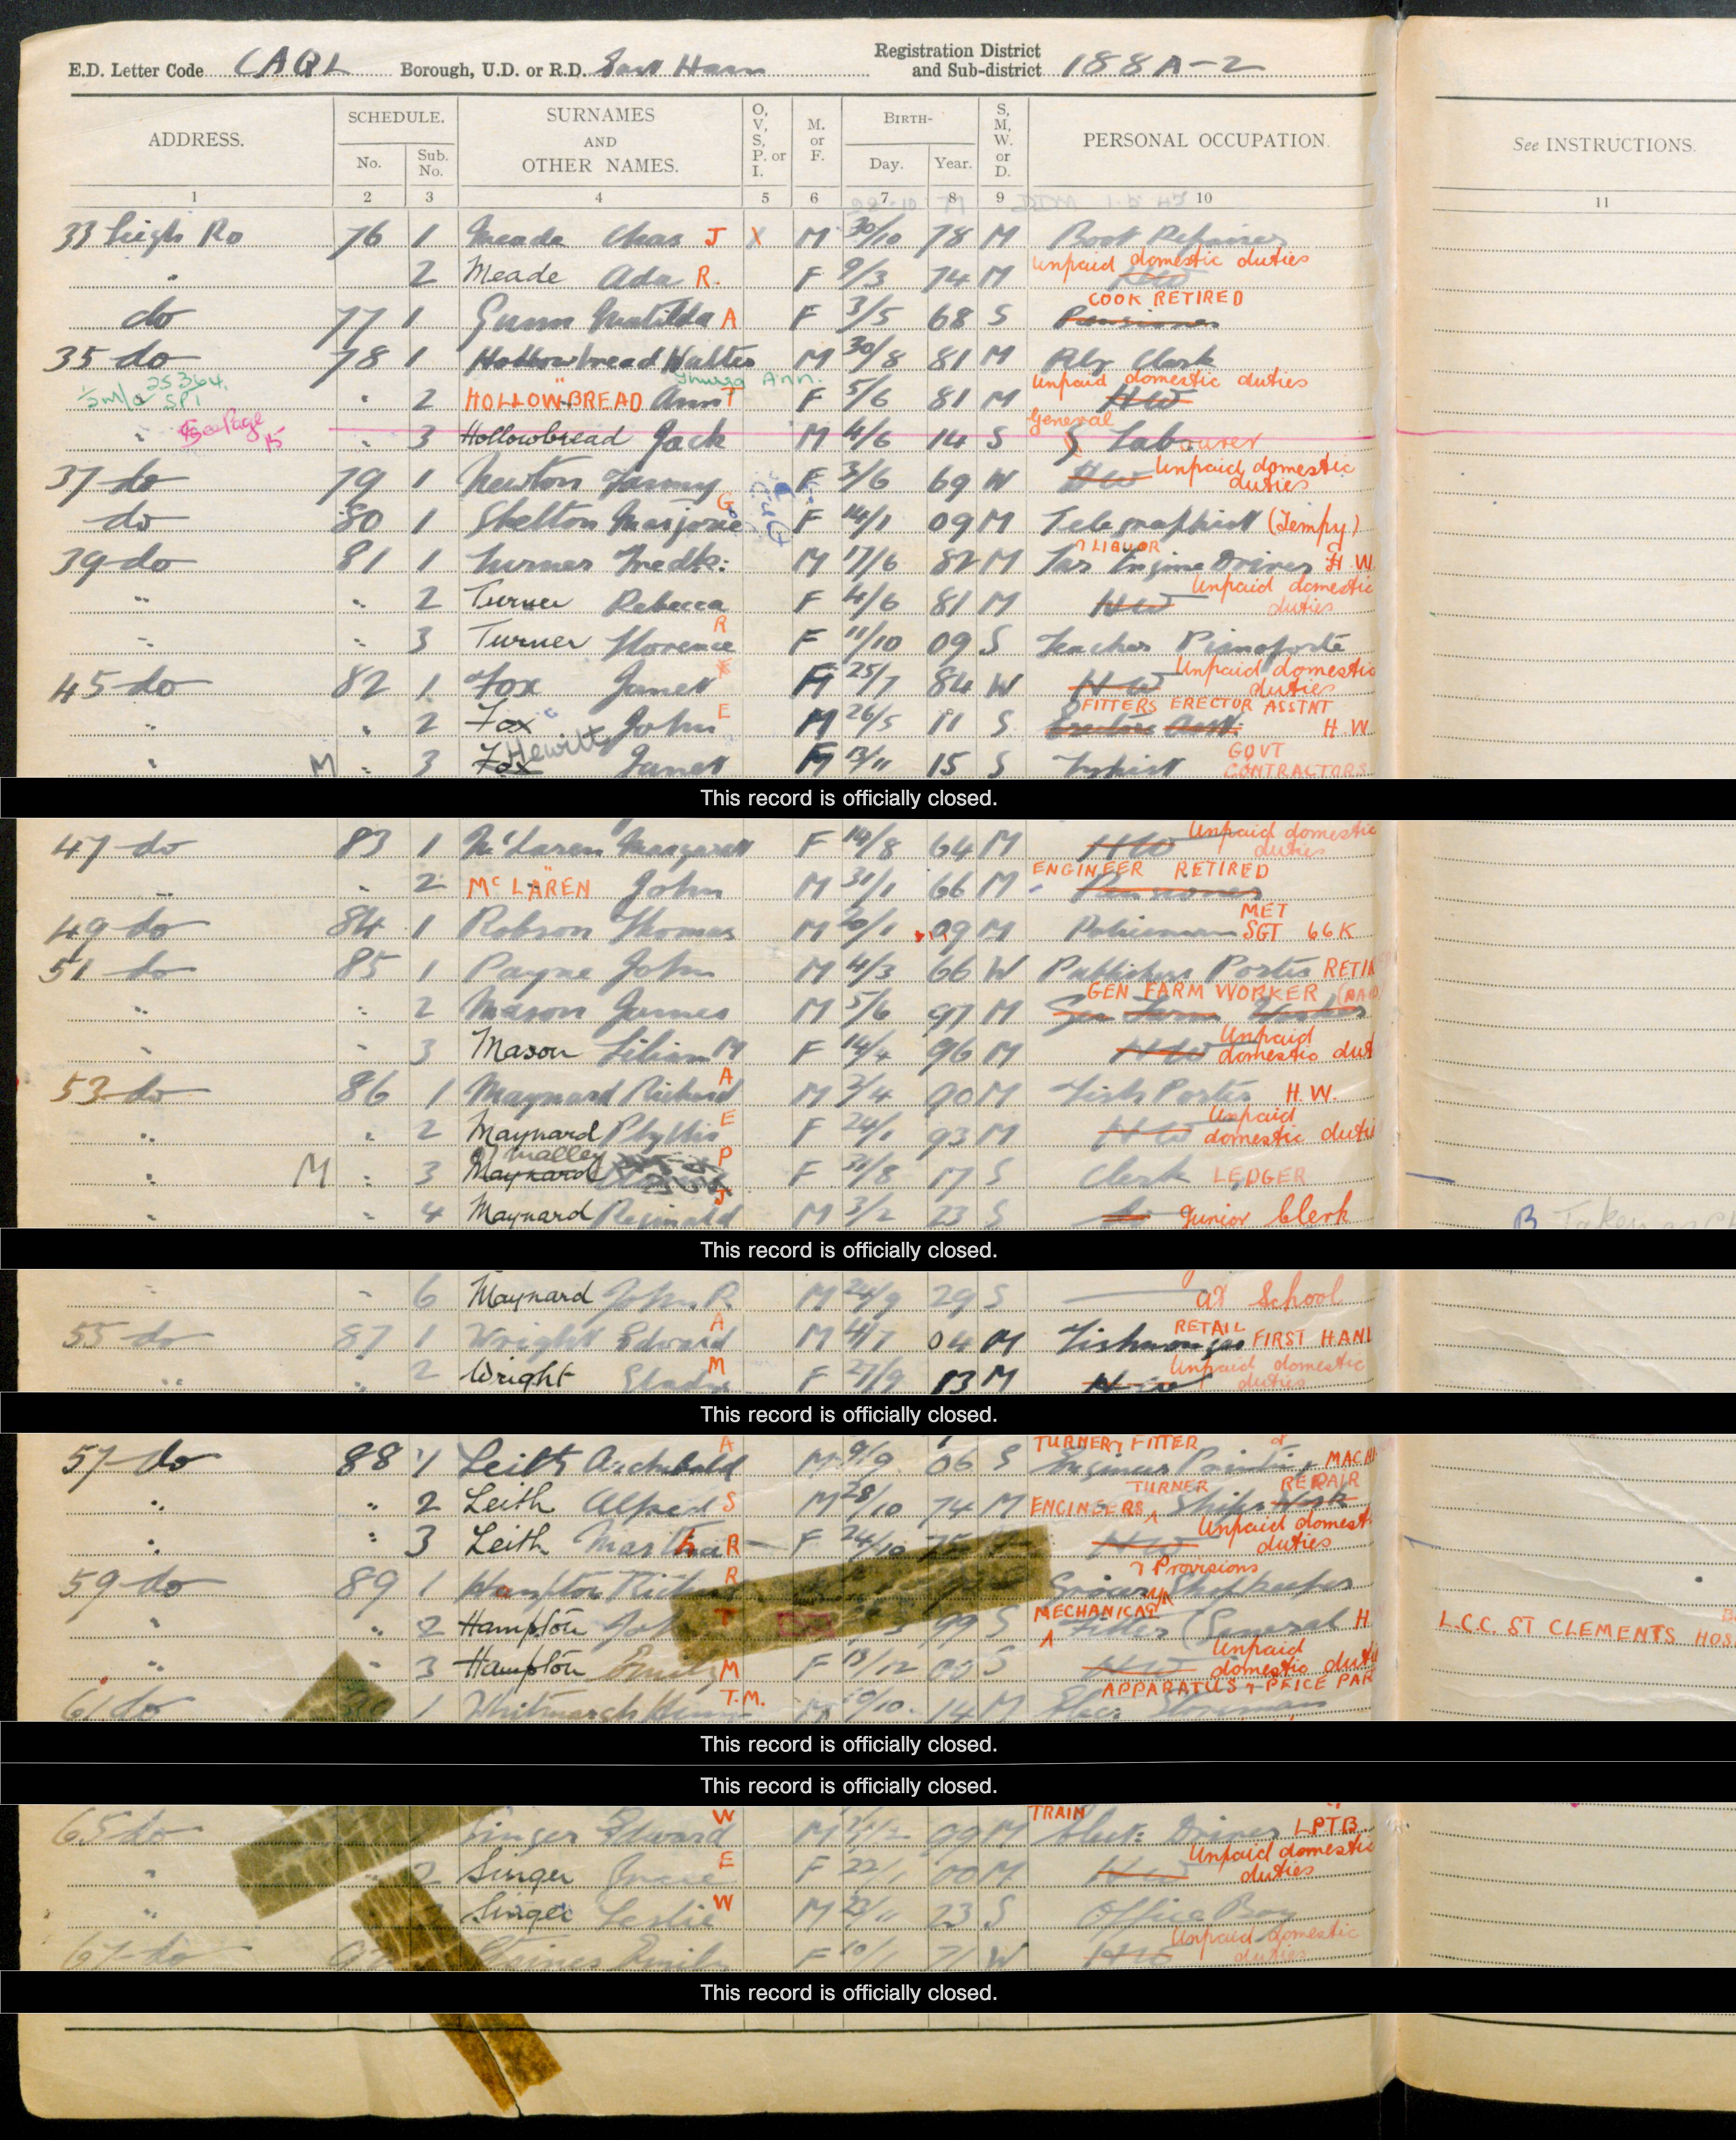 E.D. Letter Code CAQL Borough, U.D. or R.D. East Ham Registration District and Sub-district 188A-2
ADDRESS. SCHEDULE. No. Sub. No. SURNAMES AND OTHER NAMES. O, V, S, P. or I. M. or F. BIRTH- Day. Year. S, M, W. or D. PERSONAL OCCUPATION. See INSTRUCTIONS.
1 2 3 4 5 6 7 8 9 10 11
33 Leigh Rd 76 1 Meade Chas J X M 30/10 78 M Boot Repairer
" 2 Meade Ada R. F 9/3 74 M Unpaid domestic duties HW
do 77 1 Gunn Matilda A F 3/5 68 S COOK RETIRED Pensioner
35 do 78 1 Hollowbread Walter M 30/8 81 M Rly Clerk
25364 SP1 " 2 HOLLOWBREAD Ann T Ann. F 5/6 81 M Unpaid domestic duties HW
" See Page 15 " 3 Hollowbread Jack M 4/6 14 S General Labourer
37 do 79 1 Newton Fanny F 3/6 69 W HW Unpaid domestic duties
do 80 1 Skelton Marjorie G F 14/1 09 M Telegraphist (Tempy)
39 do 81 1 Turner Fredk: M 17/6 82 M Tar & LIQUOR Engine Driver H.W.
" " 2 Turner Rebecca F 4/6 81 M HW Unpaid domestic duties
" " 3 Turner Florence R F 11/10 09 S Teacher Pianoforte
45 do 82 1 Fox Janet F 25/7 84 W HW Unpaid domestic duties
" " 2 Fox John E M 26/5 11 S FITTERS ERECTOR ASSTNT Erectors Asst. H.W.
" M " 3 Fox Hewitt Janet F 13/11 15 S Typist GOVT CONTRACTORS
This record is officially closed.
47 do 83 1 McLaren Margaret F 14/8 64 M HW Unpaid domestic duties
" " 2 McLAREN John M 31/1 66 M ENGINEER RETIRED Pensioner
49 do 84 1 Robson Thomas M 20/1 09 M Policeman MET SGT 66K
51 do 85 1 Payne John M 4/3 66 W Publishers Porter RETI
" " 2 Mason James M 5/6 97 M GEN FARM WORKER Gen Farm Worker
" " 3 Mason Lilian M F 14/4 96 M HW Unpaid domestic dut
53 do 86 1 Maynard Richard A M 2/4 90 M Fish Porter H.W.
" " 2 Maynard Phyllis E F 24/1 93 M HW Unpaid domestic duti
" M " 3 Maynard O'malley P F 31/8 17 S Clerk LEDGER
" " 4 Maynard Reginald J M 3/2 23 S Junior Clerk
B Taken
This record is officially closed.
" " 6 Maynard John R M 24/9 29 S at School
55 do 87 1 Wright Edward A M 4/7 04 M Fishmonger RETAIL FIRST HAN
" " 2 Wright Gladys M F 27/9 13 M HW Unpaid domestic duties
This record is officially closed.
57 do 88 1 Leith Archibald A M 9/9 06 S TURNER & FITTER Engineer MACH
" " 2 Leith Alfred S M 28/10 74 M ENGINEERS TURNER Ships Work REPAIR
" " 3 Leith Martha R F 24/10 HW Unpaid domest duties
59 do 89 1 Hampton Richard R Grocery & Provisions Shopkeeper
" " 2 Hampton T 99 S MECHANICAL Fitter (General H
L.C.C. ST CLEMENTS HOS
" " 3 Hampton Emily M F 13/12 S HW Unpaid domestic duti
61 do 1 Whitmarsh Henry T.M. M 10/10 14 M APPARATUS & Elec: Storeman
This record is officially closed.
This record is officially closed.
65 do Singer Edward W M 99 M TRAIN Elect: Driver LPTB.
" 2 Singer E F 22/1 00 M HW Unpaid domestic duties
" Singer Leslie W M 22/11 23 S Office Boy
67 do Staines Emily F 10/1 71 W HW Unpaid domestic duties
This record is officially closed.